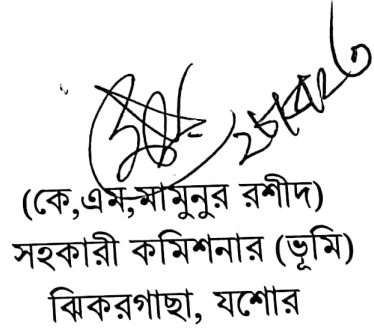 (কে,এম,মামুনুর রশীদ)
সহকারী কমিশনার (ভূমি)
ঝিকরগাছা, যশোর